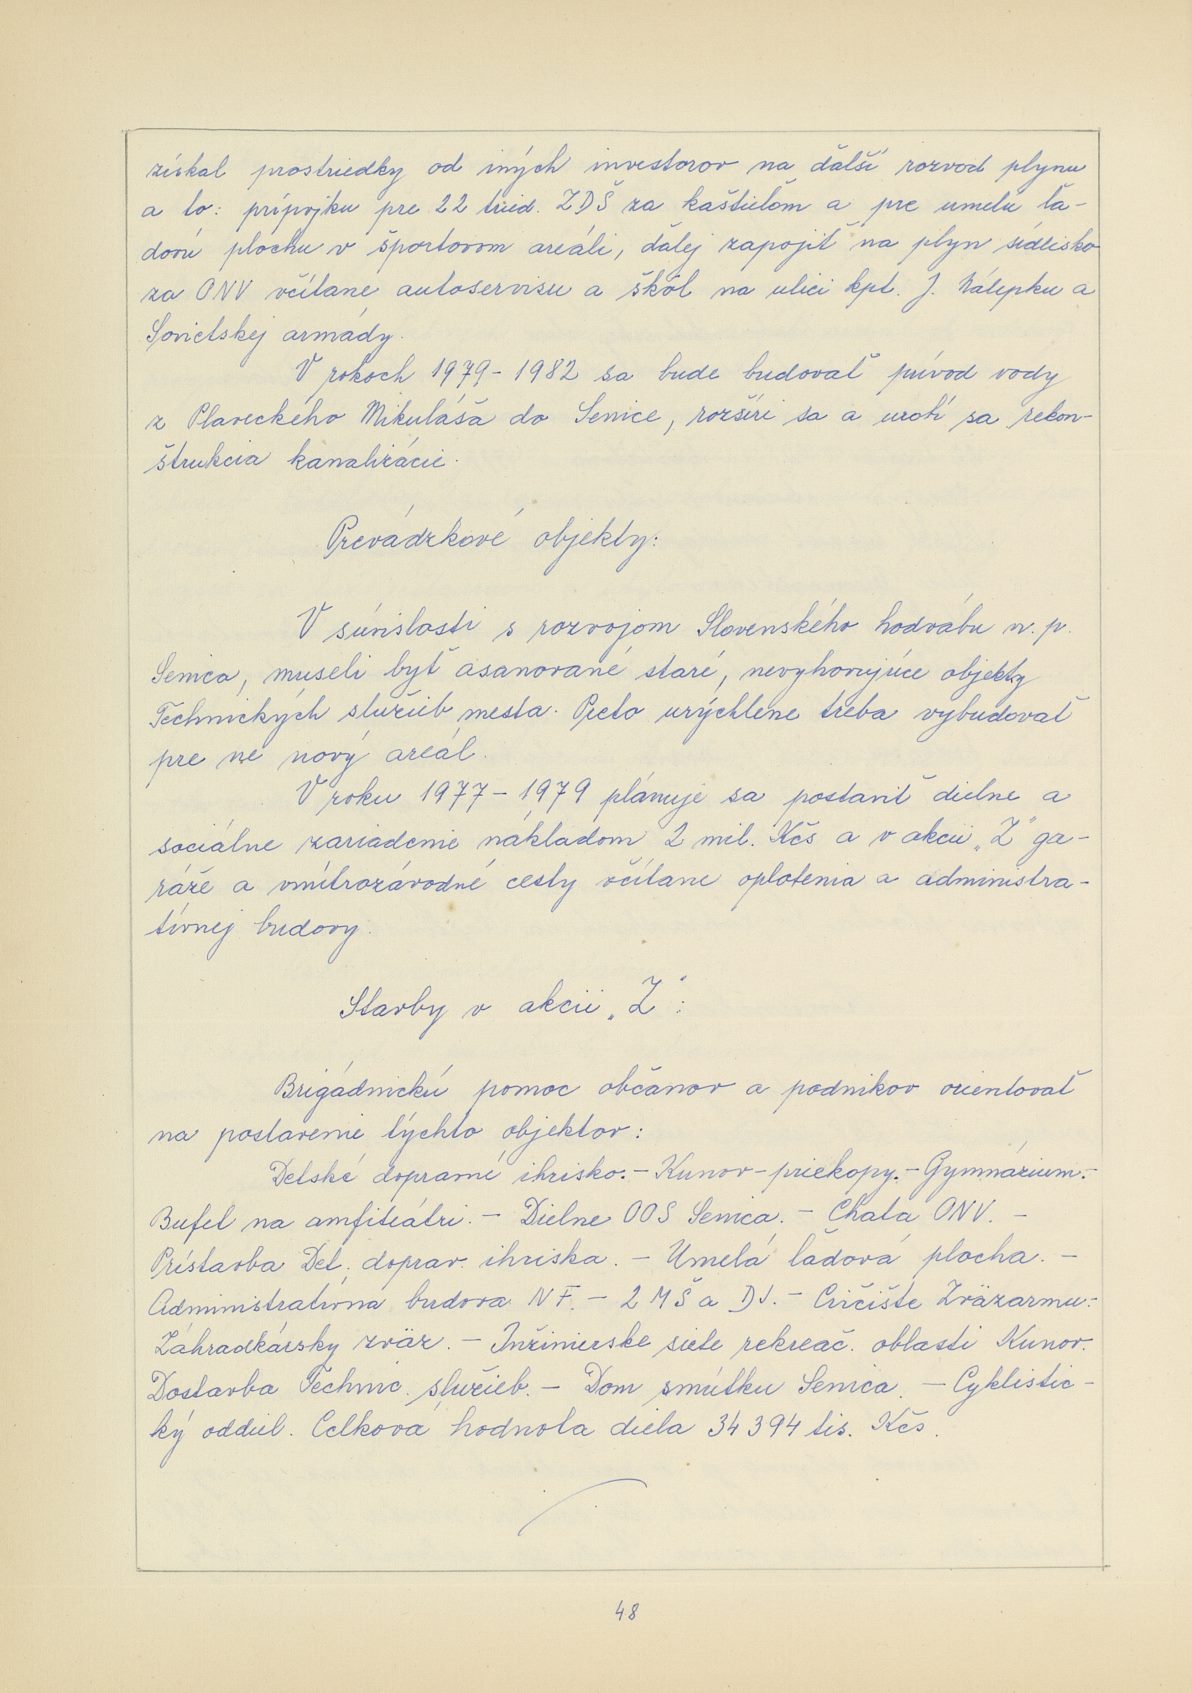 získal prostriedky od iných investorov na ďalší rozvod plynu
a to: prípojku pre 22 tried. ZDŠ za kaštieľom a pre umelú ľa-
dovú plochu v športovom areáli, ďalej zapojiť na plyn sídlisko
za ONV včítane autoservisu a škôl na ulici kpt. J. Nálepku a
Sovietskej armády.
V rokoch 1979-1982 sa bude budovať prívod vody
z Plaveckého Mikuláša do Senice, rozšíri sa a urobí sa rekon-
štrukcia kanalizácie.
Prevádzkové objekty:
V súvislosti s rozvojom Slovenského hodvábu n. p.
Senica, museli byť asanované staré, nevyhovujúce objekty
Technických služieb mesta. Preto urýchlene treba vybudovať
pre ne nový areál.
V roku 1977-1979 plánuje sa postaviť dielne a
sociálne zariadenie nákladom 2 mil. Kčs a v akcii „Z" ga-
ráže a vnútrozávodné cesty včítane oplotenia a administra-
tívnej budovy.
Stavby v akcii „Z":
Brigádnickú pomoc občanov a podnikov orientovať
na postavenie týchto objektov:
Detské dopravné ihrisko.- Kunov-priekopy.- Gymnázium.-
Bufet na amfiteátri. - Dielne OOS Senica. - Chata ONV. -
Prístavba Det. doprav. ihriska. - Umelá ľadová plocha. -
Administratívna budova NF. - 2 MŠ a DJ. - Cvičište Zväzarmu.-
Záhradkársky zväz. - Inžinierske siete rekreač. oblasti Kunov.
Dostavba Technic. služieb. - Dom smútku Senica. - Cyklistic-
ký oddiel. Celková hodnota diela 34 394 tis. Kčs.
48